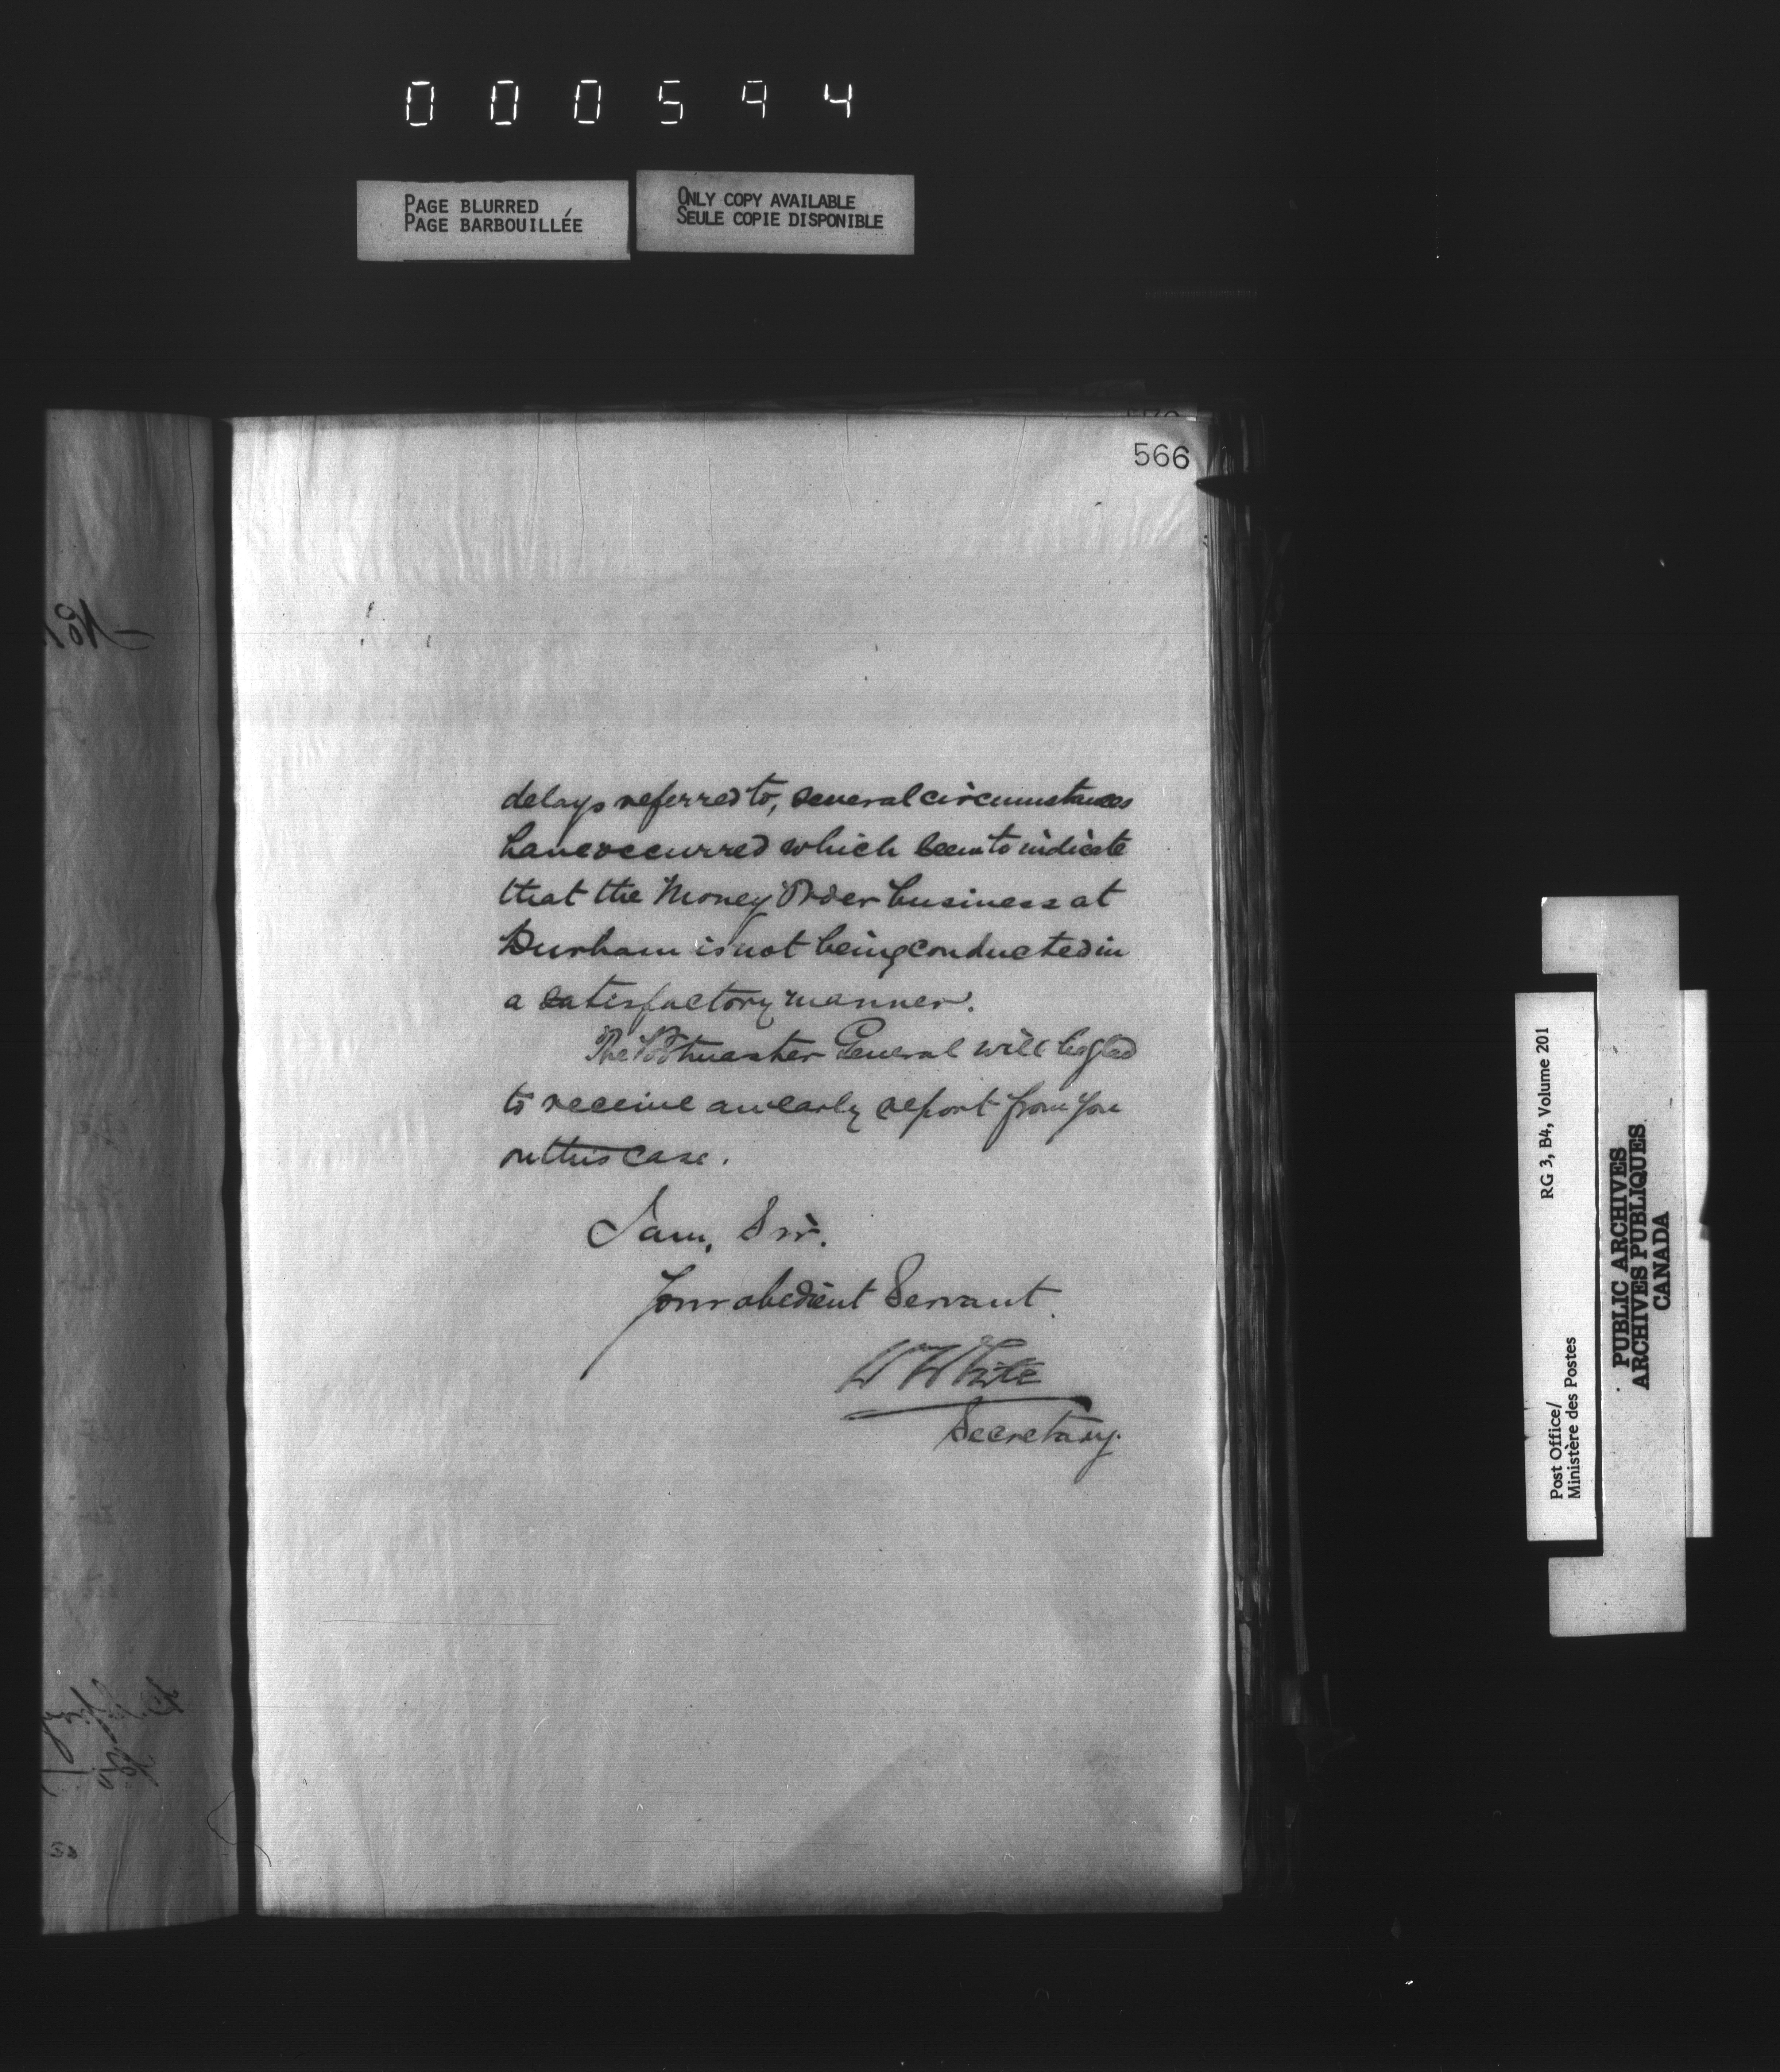 000594
PAGE BLURRED
PAGE BARBOUILLÉE
ONLY COPY AVAILABLE
SEULE COPIE DISPONIBLE
566
delays referred to, several circumstances
have occurred which seem to indicate
that the Money Order business at
Durham is not being conducted in
a satisfactory manner.
The Postmaster General will be glad
to receive an early report from you
on this case.
I am, Sir.
Your obedient Servant.
W White
Secretary.
RG 3, B4, Volume 201
Post Office/
Ministère des Postes
PUBLIC ARCHIVES
ARCHIVES PUBLIQUES
CANADA